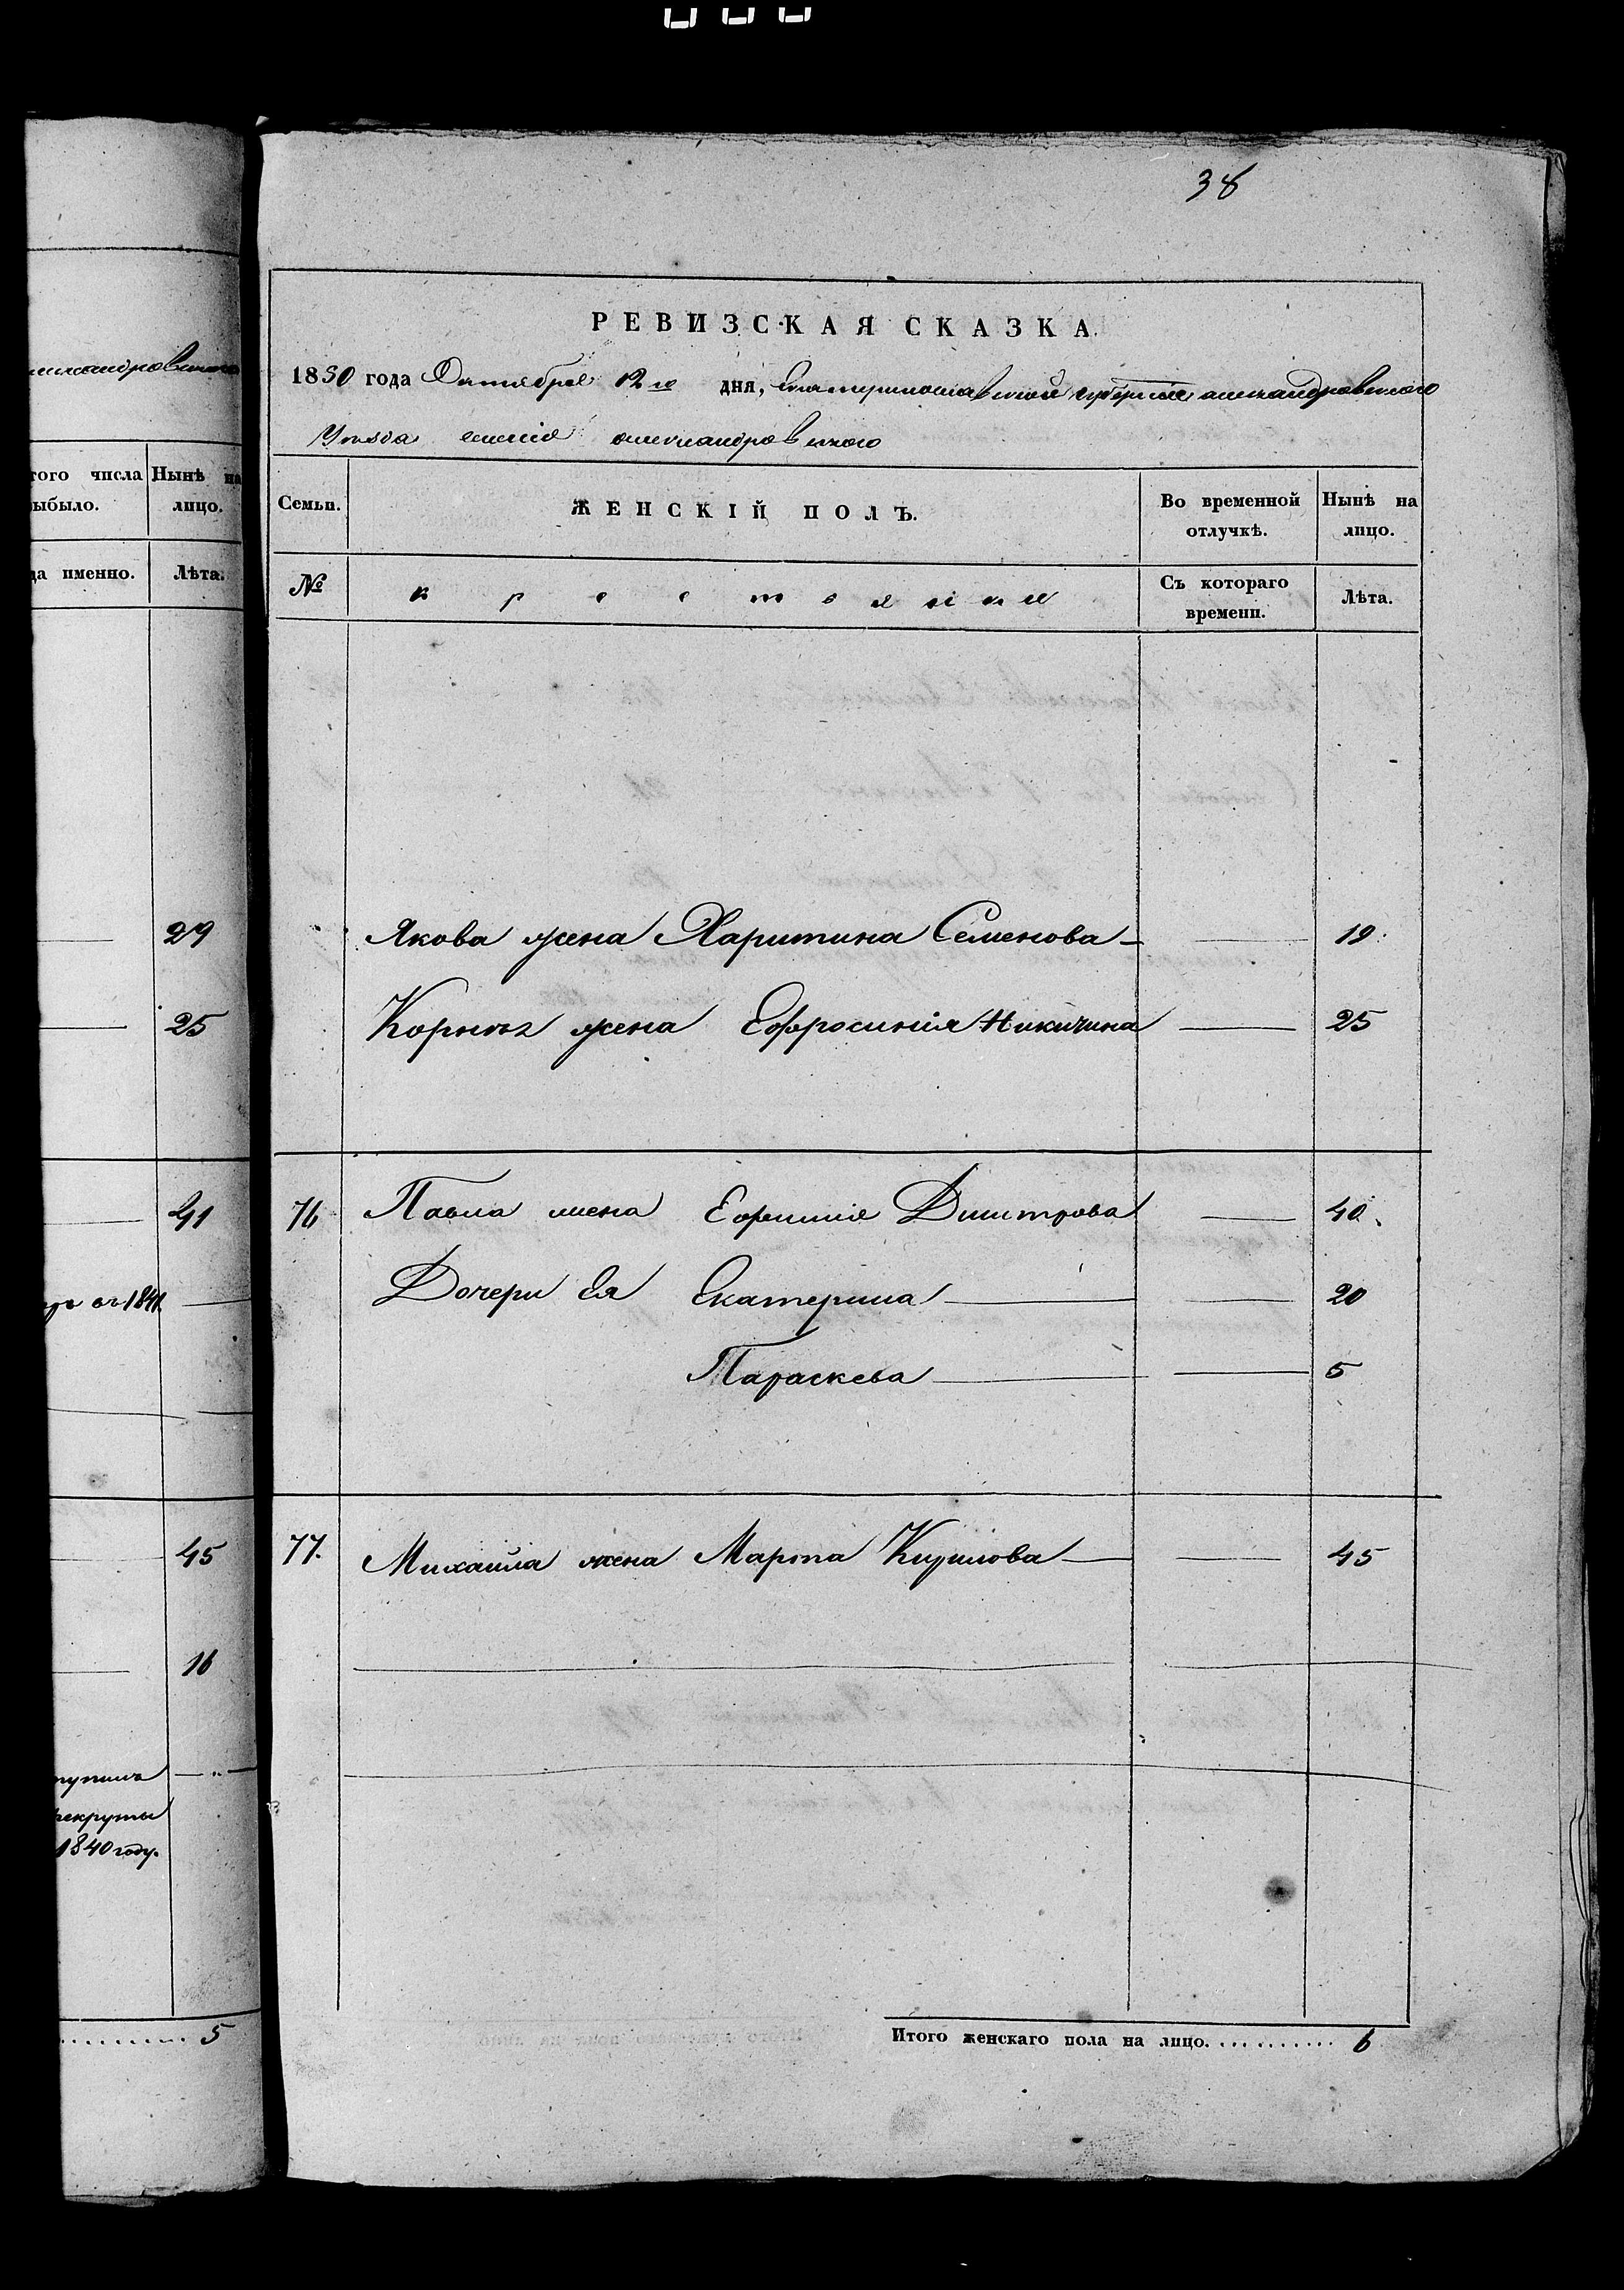 38
александровского
того числа Нынѣ на
выбыло. лицо.
да именно. Лѣта.
29
25
41
въ 1841
45
16
рекруты
1840 году.
5
РЕВИЗСКАЯ СКАЗКА.
1850 года Октября 12го дня, Екатеринославской губерніи александровского
Уѣзда селенія александровского
Семьи. ЖЕНСКІЙ ПОЛЪ. Во временной Нынѣ на
отлучкѣ. лицо.
№ крестьянки Съ котораго Лѣта.
времени.
Якова жена Харитина Семенова — — 19.
Корнѣя жена Ефросинія Никитина — 25
76 Павла жена Ефимия Дмитрова — 40.
Дочери Ея Екатерина — — 20
Параскева — — 5
77. Михаила жена Марта Кирилова — — 45
Итого женскаго пола на лицо. .......... 6